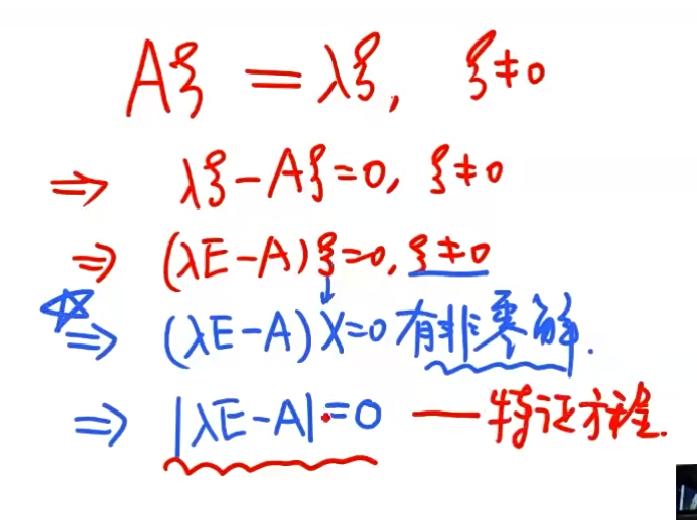 Aξ = λξ, ξ≠0
⇒ λξ-Aξ=0, ξ≠0
⇒ (λE-A)ξ=0, ξ≠0
☆⇒ (λE-A)X=0 有非零解.
⇒ |λE-A|=0 — 特证方程.